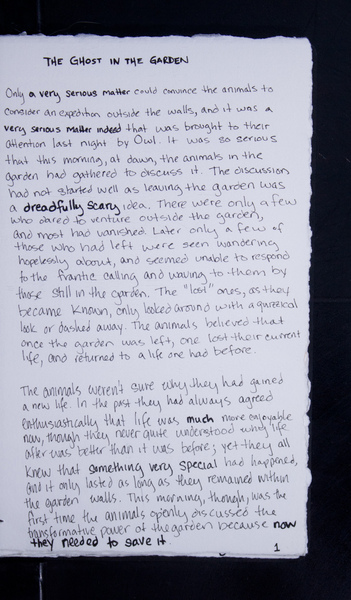 THE GHOST IN THE GARDEN
Only a very serious matter could convince the animals to
consider an expedition outside the walls, and it was a
very serious matter indeed that was brought to their
attention last night by Owl. It was so serious
that this morning, at dawn, the animals in the
garden had gathered to discuss it. The discussion
had not started well as leaving the garden was
a dreadfully scary idea. There were only a few
who dared to venture outside the garden,
and most had vanished. Later only a few of
those who had left were seen wandering
hopelessly about, and seemed unable to respond
to the frantic calling and waving to them by
those still in the garden. The "lost" ones, as they
became known, only looked around with a quizzical
look or dashed away. The animals believed that
once the garden was left, one lost their current
life, and returned to a life one had before.
The animals weren't sure why they had gained
a new life. In the past they had always agreed
enthusiastically that life was much more enjoyable
now, though they never quite understood why life
after was better than it was before; yet they all
knew that something very special had happened,
and it only lasted as long as they remained within
the garden walls. This morning, though, was the
first time the animals openly discussed the
transformative power of the garden because now
they needed to save it.
1